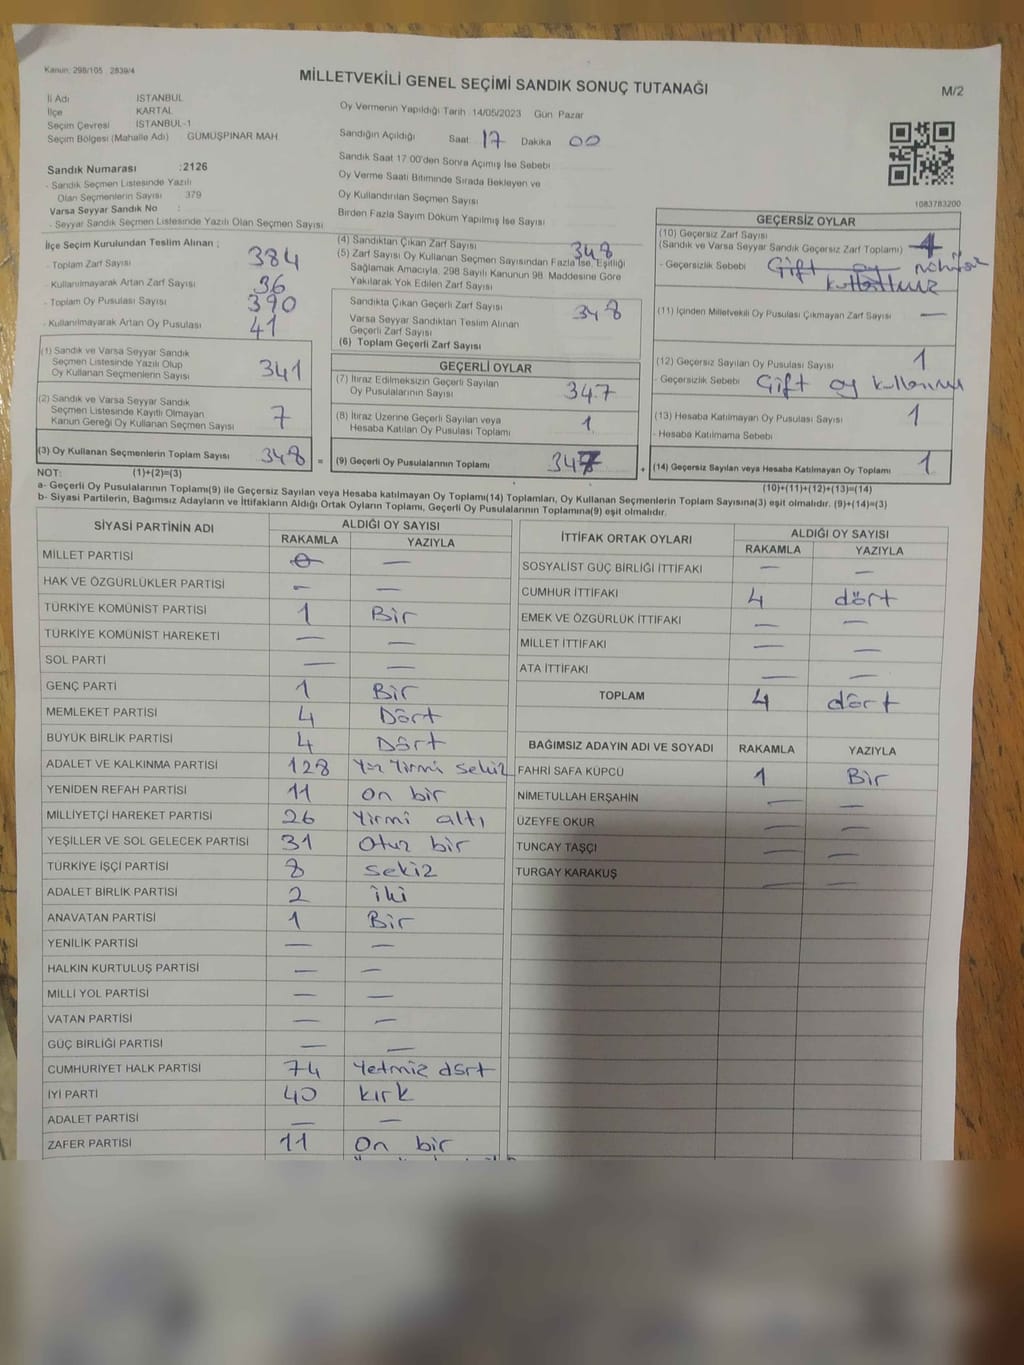 Kanun: 298/105 2839/4
MİLLETVEKİLİ GENEL SEÇİMİ SANDIK SONUÇ TUTANAĞI
M/2
İl Adı İSTANBUL
İlçe KARTAL
Seçim Çevresi İSTANBUL-1
Seçim Bölgesi (Mahalle Adı) GÜMÜŞPINAR MAH
Sandık Numarası :2126
- Sandık Seçmen Listesinde Yazılı
Olan Seçmenlerin Sayısı 379
Varsa Seyyar Sandık No :
- Seyyar Sandık Seçmen Listesinde Yazılı Olan Seçmen Sayısı
Oy Vermenin Yapıldığı Tarih 14/05/2023 Gün Pazar
Sandığın Açıldığı Saat 17 Dakika 00
Sandık Saat 17 00'den Sonra Açımış İse Sebebi
Oy Verme Saati Bitiminde Sırada Bekleyen ve
Oy Kullandırılan Seçmen Sayısı
Birden Fazla Sayım Döküm Yapılmış İse Sayısı
1083783200
İlçe Seçim Kurulundan Teslim Alınan ;
- Toplam Zarf Sayısı 384
- Kullanılmayarak Artan Zarf Sayısı 36
- Toplam Oy Pusulası Sayısı 390
- Kullanılmayarak Artan Oy Pusulası 41
(1) Sandık ve Varsa Seyyar Sandık
Seçmen Listesinde Yazılı Olup
Oy Kullanan Seçmenlerin Sayısı 341
(2) Sandık ve Varsa Seyyar Sandık
Seçmen Listesinde Kayıtlı Olmayan
Kanun Gereği Oy Kullanan Seçmen Sayısı 7
(3) Oy Kullanan Seçmenlerin Toplam Sayısı 348 =
(4) Sandıktan Çıkan Zarf Sayısı 348
(5) Zarf Sayısı Oy Kullanan Seçmen Sayısından Fazla İse, Eşitliği
Sağlamak Amacıyla, 298 Sayılı Kanunun 98. Maddesine Göre
Yakılarak Yok Edilen Zarf Sayısı
Sandıkta Çıkan Geçerli Zarf Sayısı 348
Varsa Seyyar Sandıktan Teslim Alınan
Geçerli Zarf Sayısı
(6) Toplam Geçerli Zarf Sayısı
GEÇERLİ OYLAR
(7) İtiraz Edilmeksizin Geçerli Sayılan
Oy Pusulalarının Sayısı 347
(8) İtiraz Üzerine Geçerli Sayılan veya
Hesaba Katılan Oy Pusulası Toplamı 1
(9) Geçerli Oy Pusulalarının Toplamı 347 +
GEÇERSİZ OYLAR
(10) Geçersiz Zarf Sayısı
(Sandık ve Varsa Seyyar Sandık Geçersiz Zarf Toplamı)
- Geçersizlik Sebebi Çift oy
(11) İçinden Milletvekili Oy Pusulası Çıkmayan Zarf Sayısı —
(12) Geçersiz Sayılan Oy Pusulası Sayısı 1
- Geçersizlik Sebebi Çift oy
(13) Hesaba Katılmayan Oy Pusulası Sayısı 1
- Hesaba Katılmama Sebebi
(14) Geçersiz Sayılan veya Hesaba Katılmayan Oy Toplamı 1
NOT: (1)+(2)=(3) (10)+(11)+(12)+(13)=(14)
a- Geçerli Oy Pusulalarının Toplamı(9) ile Geçersiz Sayılan veya Hesaba katılmayan Oy Toplamı(14) Toplamları, Oy Kullanan Seçmenlerin Toplam Sayısına(3) eşit olmalıdır. (9)+(14)=(3)
b- Siyasi Partilerin, Bağımsız Adayların ve İttifakların Aldığı Ortak Oyların Toplamı, Geçerli Oy Pusulalarının Toplamına(9) eşit olmalıdır.
SİYASİ PARTİNİN ADI ALDIĞI OY SAYISI
RAKAMLA YAZIYLA
MİLLET PARTİSİ 0 —
HAK VE ÖZGÜRLÜKLER PARTİSİ - —
TÜRKİYE KOMÜNİST PARTİSİ 1 Bir
TÜRKİYE KOMÜNİST HAREKETİ — —
SOL PARTİ — —
GENÇ PARTİ 1 Bir
MEMLEKET PARTİSİ 4 Dört
BÜYÜK BİRLİK PARTİSİ 4 Dört
ADALET VE KALKINMA PARTİSİ 128 Yüz Yirmi sekiz
YENİDEN REFAH PARTİSİ 11 On bir
MİLLİYETÇİ HAREKET PARTİSİ 26 Yirmi altı
YEŞİLLER VE SOL GELECEK PARTİSİ 31 Otuz bir
TÜRKİYE İŞÇİ PARTİSİ 8 sekiz
ADALET BİRLİK PARTİSİ 2 İki
ANAVATAN PARTİSİ 1 Bir
YENİLİK PARTİSİ — —
HALKIN KURTULUŞ PARTİSİ — —
MİLLİ YOL PARTİSİ — —
VATAN PARTİSİ — —
GÜÇ BİRLİĞİ PARTİSİ — —
CUMHURİYET HALK PARTİSİ 74 Yetmiz dört
İYİ PARTİ 40 kırk
ADALET PARTİSİ — —
ZAFER PARTİSİ 11 On bir
İTTİFAK ORTAK OYLARI ALDIĞI OY SAYISI
RAKAMLA YAZIYLA
SOSYALİST GÜÇ BİRLİĞİ İTTİFAKI — —
CUMHUR İTTİFAKI 4 dört
EMEK VE ÖZGÜRLÜK İTTİFAKI — —
MİLLET İTTİFAKI — —
ATA İTTİFAKI — —
TOPLAM 4 dört
BAĞIMSIZ ADAYIN ADI VE SOYADI RAKAMLA YAZIYLA
FAHRİ SAFA KÜPCÜ 1 Bir
NİMETULLAH ERŞAHİN — —
ÜZEYFE OKUR — —
TUNCAY TAŞÇI — —
TURGAY KARAKUŞ — —